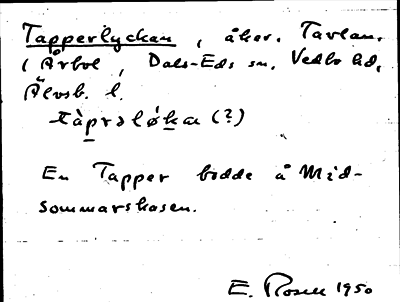 Tapperlyckan, åker. Tavlan.
i Årbol, Dals-Eds sn. Vedbo hd,
Älvsb. l.
tàprəløka (?)
En Tapper bodde å Mid-
sommarskasen.
E. Rosell 1950